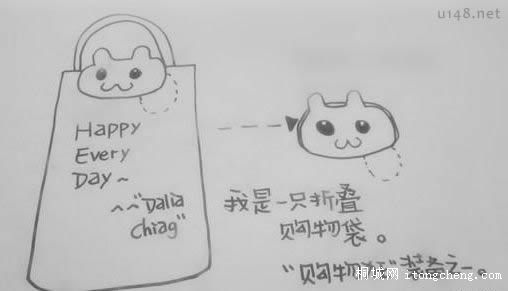 u148.net
Happy
Every
Day~
^^"Dalia
Chiag"
我是一只折叠
购物袋。
"购物
桐城网 itongcheng.com